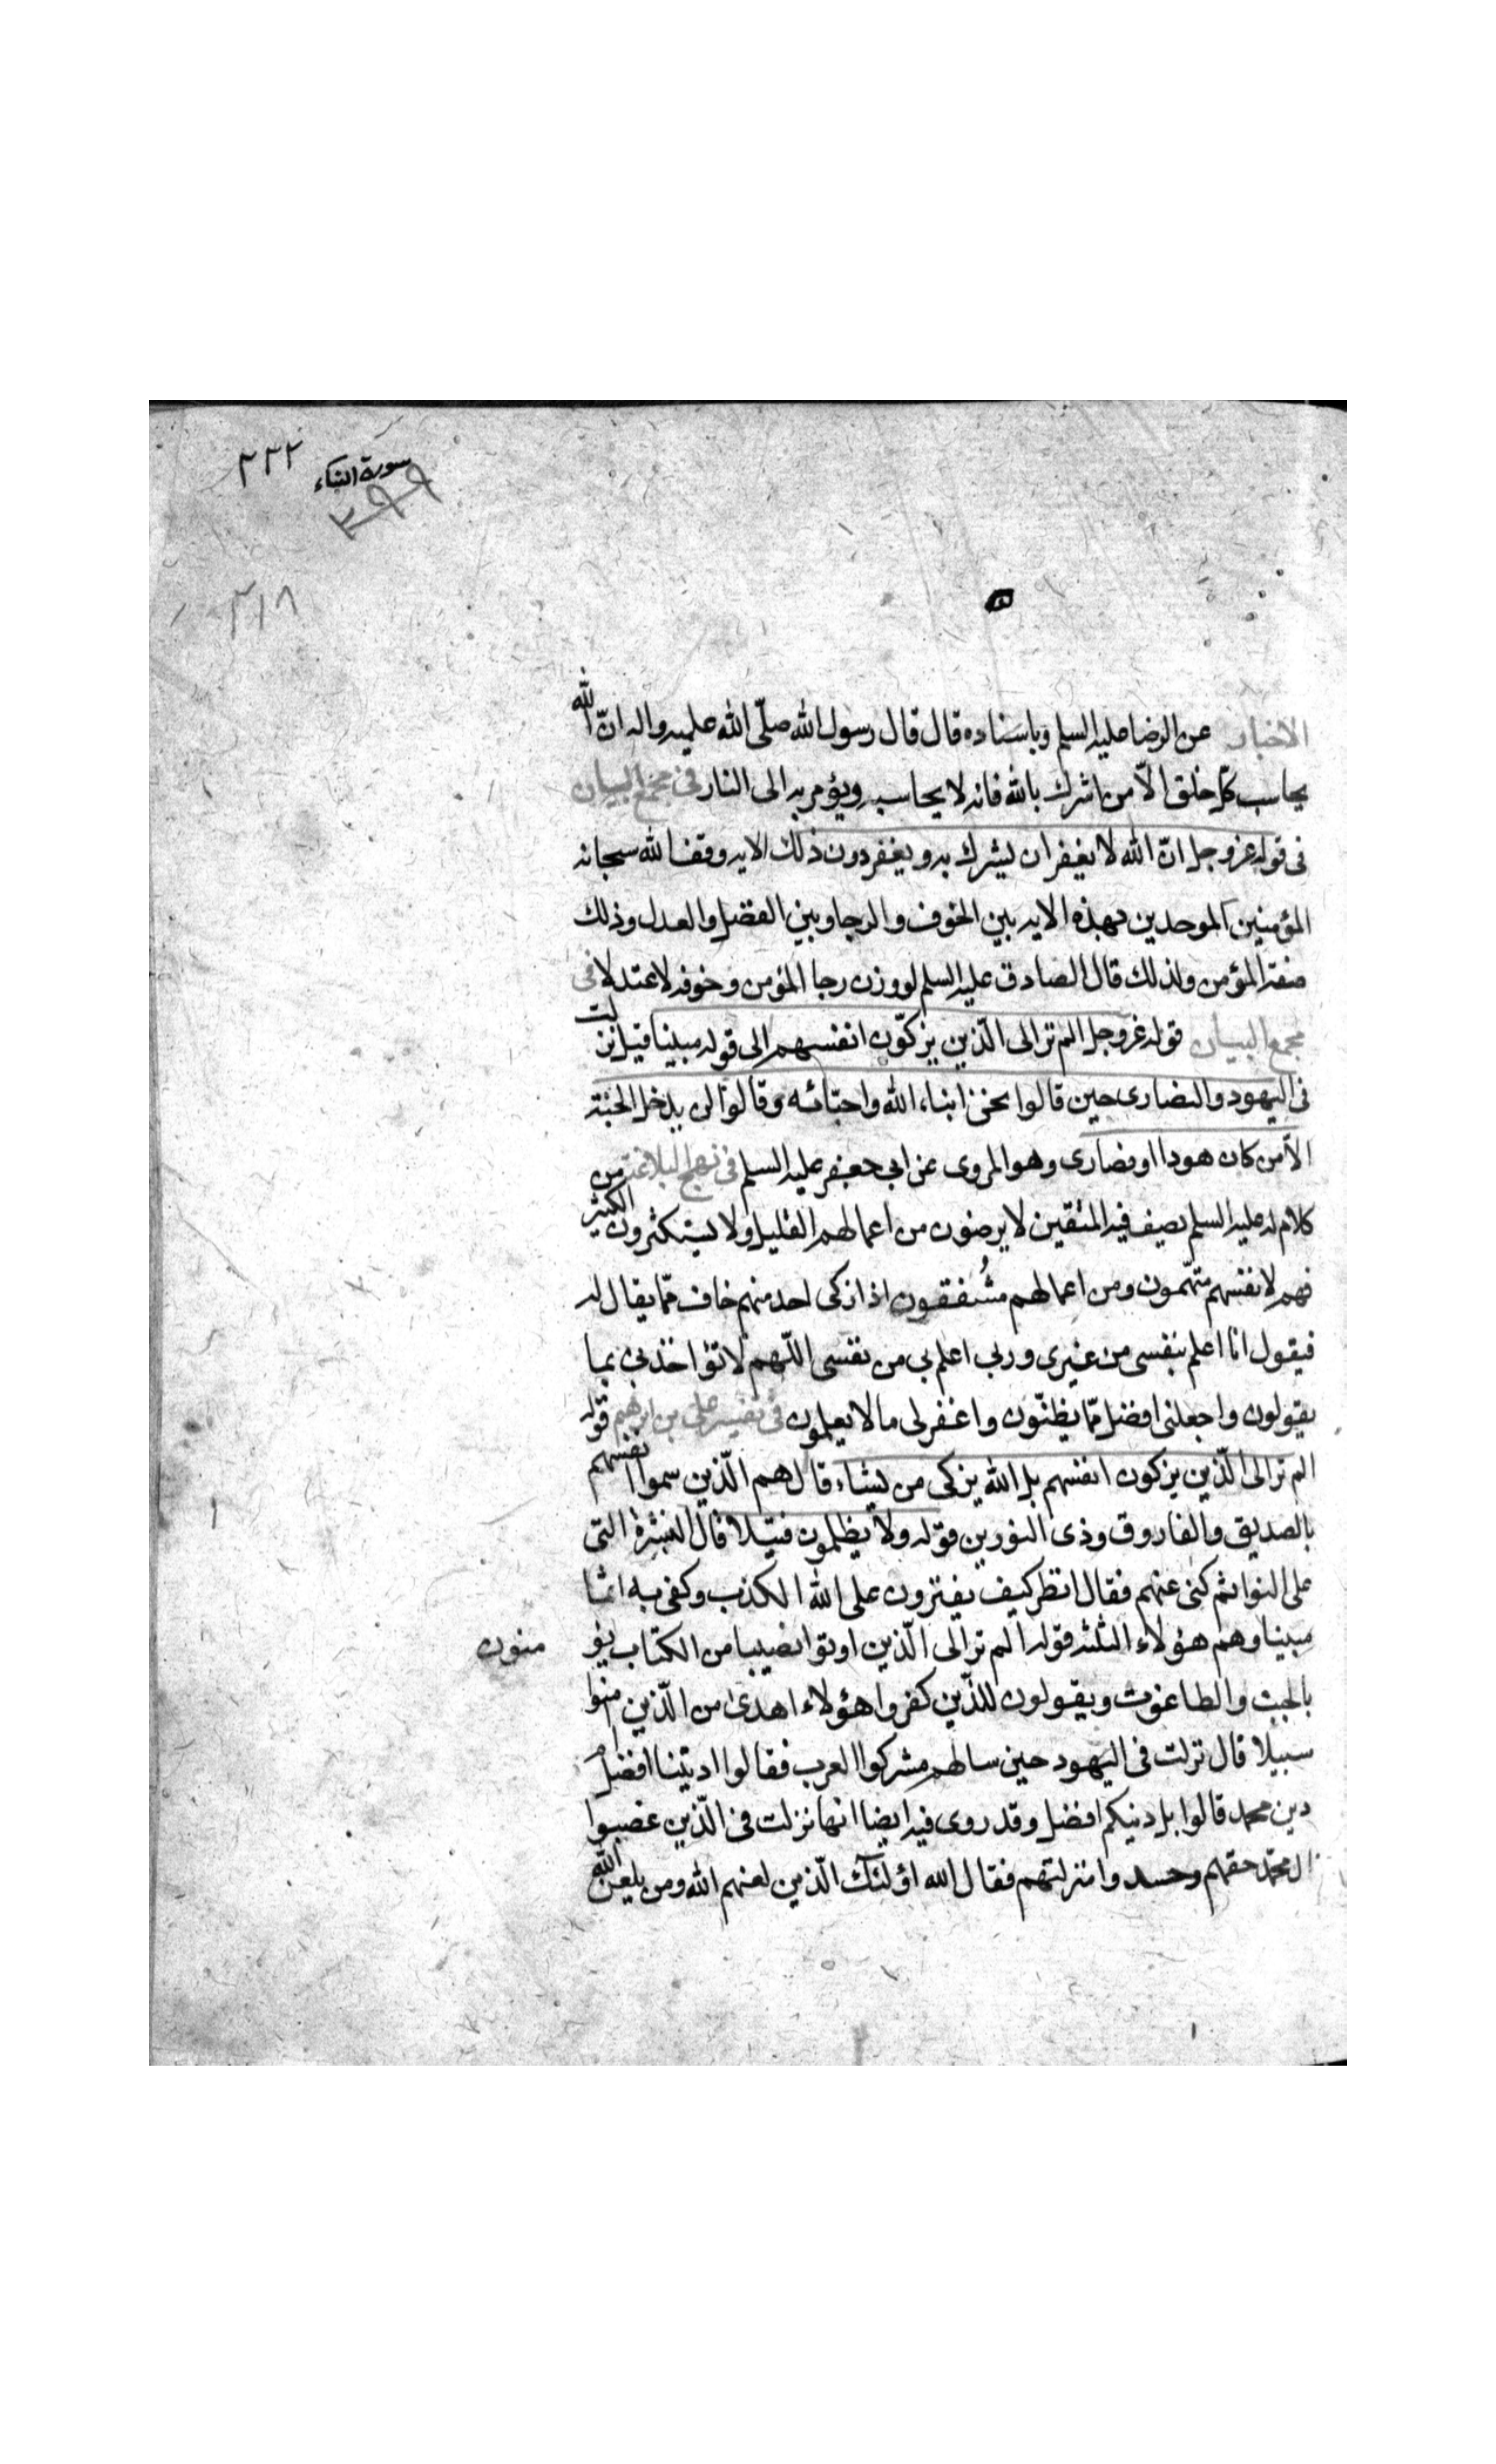 سورة النساء ٣٢٢
٣٩٩
٣١٨
الاخبار عن الرضا عليه السلم وباسناده قال قال رسول الله صلّى الله عليه واله انّ الله
يحاسب كلّ خلق الاّ من اشرك بالله فانه لا يحاسب ويؤمر به الى النار فى مجمع البيان
فى قوله عزوجل انّ الله لا يغفر ان يشرك به ويغفر دون ذلك الايه وقف الله سبحانه
المؤمنين الموحدين بهذه الايه بين الخوف والرجا وبين الفضل والعدل وذلك
صفة المؤمن ولذلك قال الصادق عليه السلم لو وزن رجا المؤمن وخوفه لاعتدلا فى
مجمع البيان قوله عزوجل الم تر الى الّذين يزكّون انفسهم الى قوله مبينا قيل نزلت
فى اليهود والنصارى حين قالوا نحن ابناء الله واحبّائه وقالوا لن يدخل الجنة
الاّ من كان هودا او نصارى وهو المروى عن ابى جعفر عليه السلم فى نهج البلاغة من
كلام له عليه السلم يصف فيه المتقين لا يرضون من اعمالهم القليل ولا يستكثرون الكثير
فهم لانفسهم متهّمون ومن اعمالهم مشفقون اذا زكى احد منهم خاف ممّا يقال له
فيقول انا اعلم بنفسى من غيرى وربى اعلم بى من نفسى اللّهم لا تؤاخذنى بما
يقولون واجعلنى افضل ممّا يظنّون واغفر لى ما لا يعلمون فى تفسير على بن ابرهيم قوله
الم تر الى الّذين يزكون انفسهم بل الله يزكى من يشاء قال هم الّذين سموا انفسهم
بالصديق والفاروق وذى النورين قوله ولا يظلمون فتيلا قال القشرة التى
على النواة ثم كنى عنهم فقال انظر كيف يفترون على الله الكذب وكفى به اثما
مبينا وهم هؤلاء الثلثه قوله الم تر الى الّذين اوتوا نصيبا من الكتاب يؤ منون
بالجبت والطاغوت ويقولون للذّين كفروا هؤلاء اهدى من الّذين امنوا
سبيلا قال نزلت فى اليهود حين سالهم مشركوا العرب فقالوا اديننا افضل ام
دين محمد قالوا بل دينكم افضل وقد روى فيه ايضا انها نزلت فى الّذين غصبوا
ال محمّد حقهم وحسدوا منزلتهم فقال الله اولئك الّذين لعنهم الله ومن يلعن الله